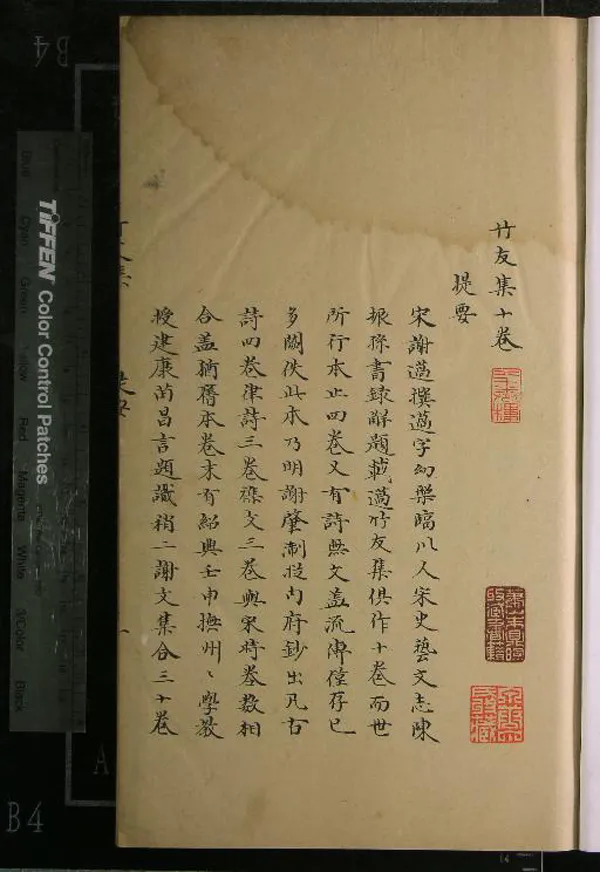 竹友集十卷
提要
宋謝薖撰薖字幼槃臨川人宋史藝文志陳
振孫書録解題載薖竹友集俱作十卷而世
所行本止四卷又有詩無文盖流傳僅存已
多闕佚此本乃明謝肇淛從内府鈔出凡古
詩四卷律詩三卷襍文三卷與宋時卷數相
合盖猶舊本卷末有紹興壬申撫州〻學教
授建康苗昌言題識稱二謝文集合三十卷
TIFFEN Color Control Patches
Blue Cyan Green Yellow Red Magenta White 3/Color Black
B4
A
B4